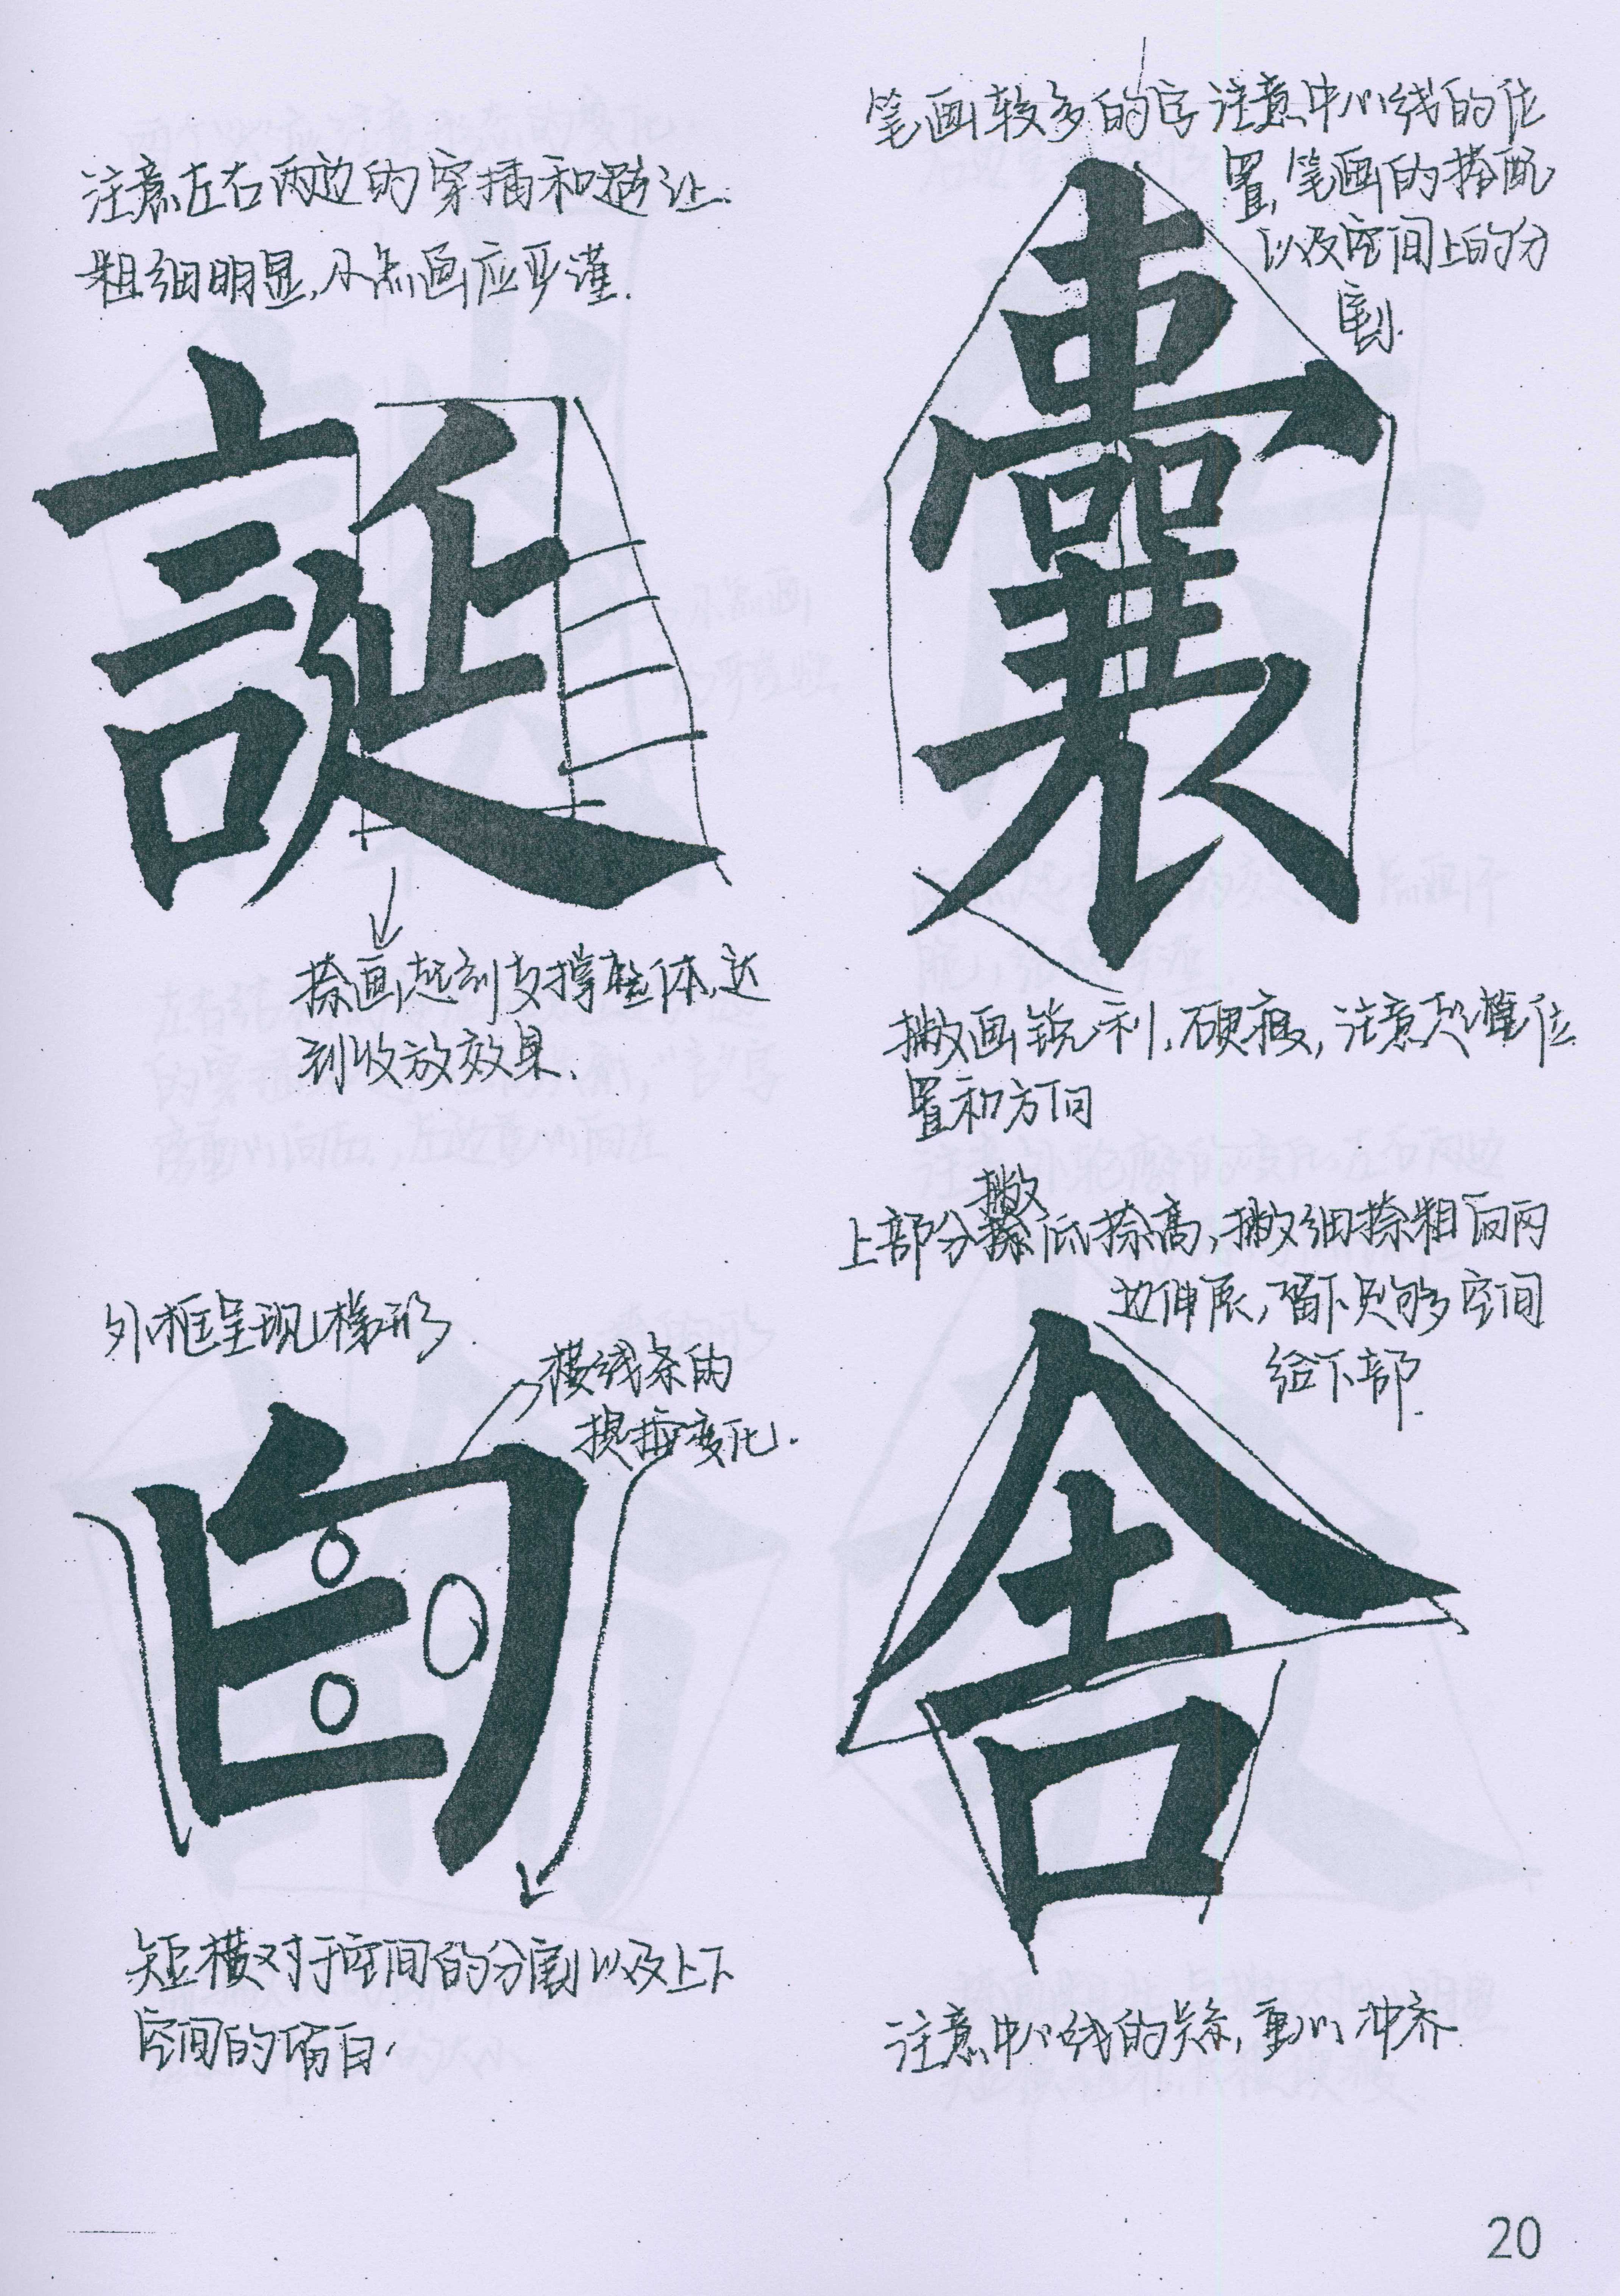 注意左右两边的穿插和避让.
粗细明显,小点画应严谨.
誕
捺画起到支撑整体,达
到收放效果.
笔画较多的字注意中心线的位
置,笔画的搭配
以及空间上的分
割.
囊
撇画锐利,硬瘦,注意起笔位
置和方向
外框呈现梯形
横线条的
提按变化.
短横对于空间的分割以及上下
空间的留白.
撇
上部分低捺高,撇细捺粗向两
边伸展,留下足够多空间
给下部.
舍
注意中心线的关系,重心冲齐
20